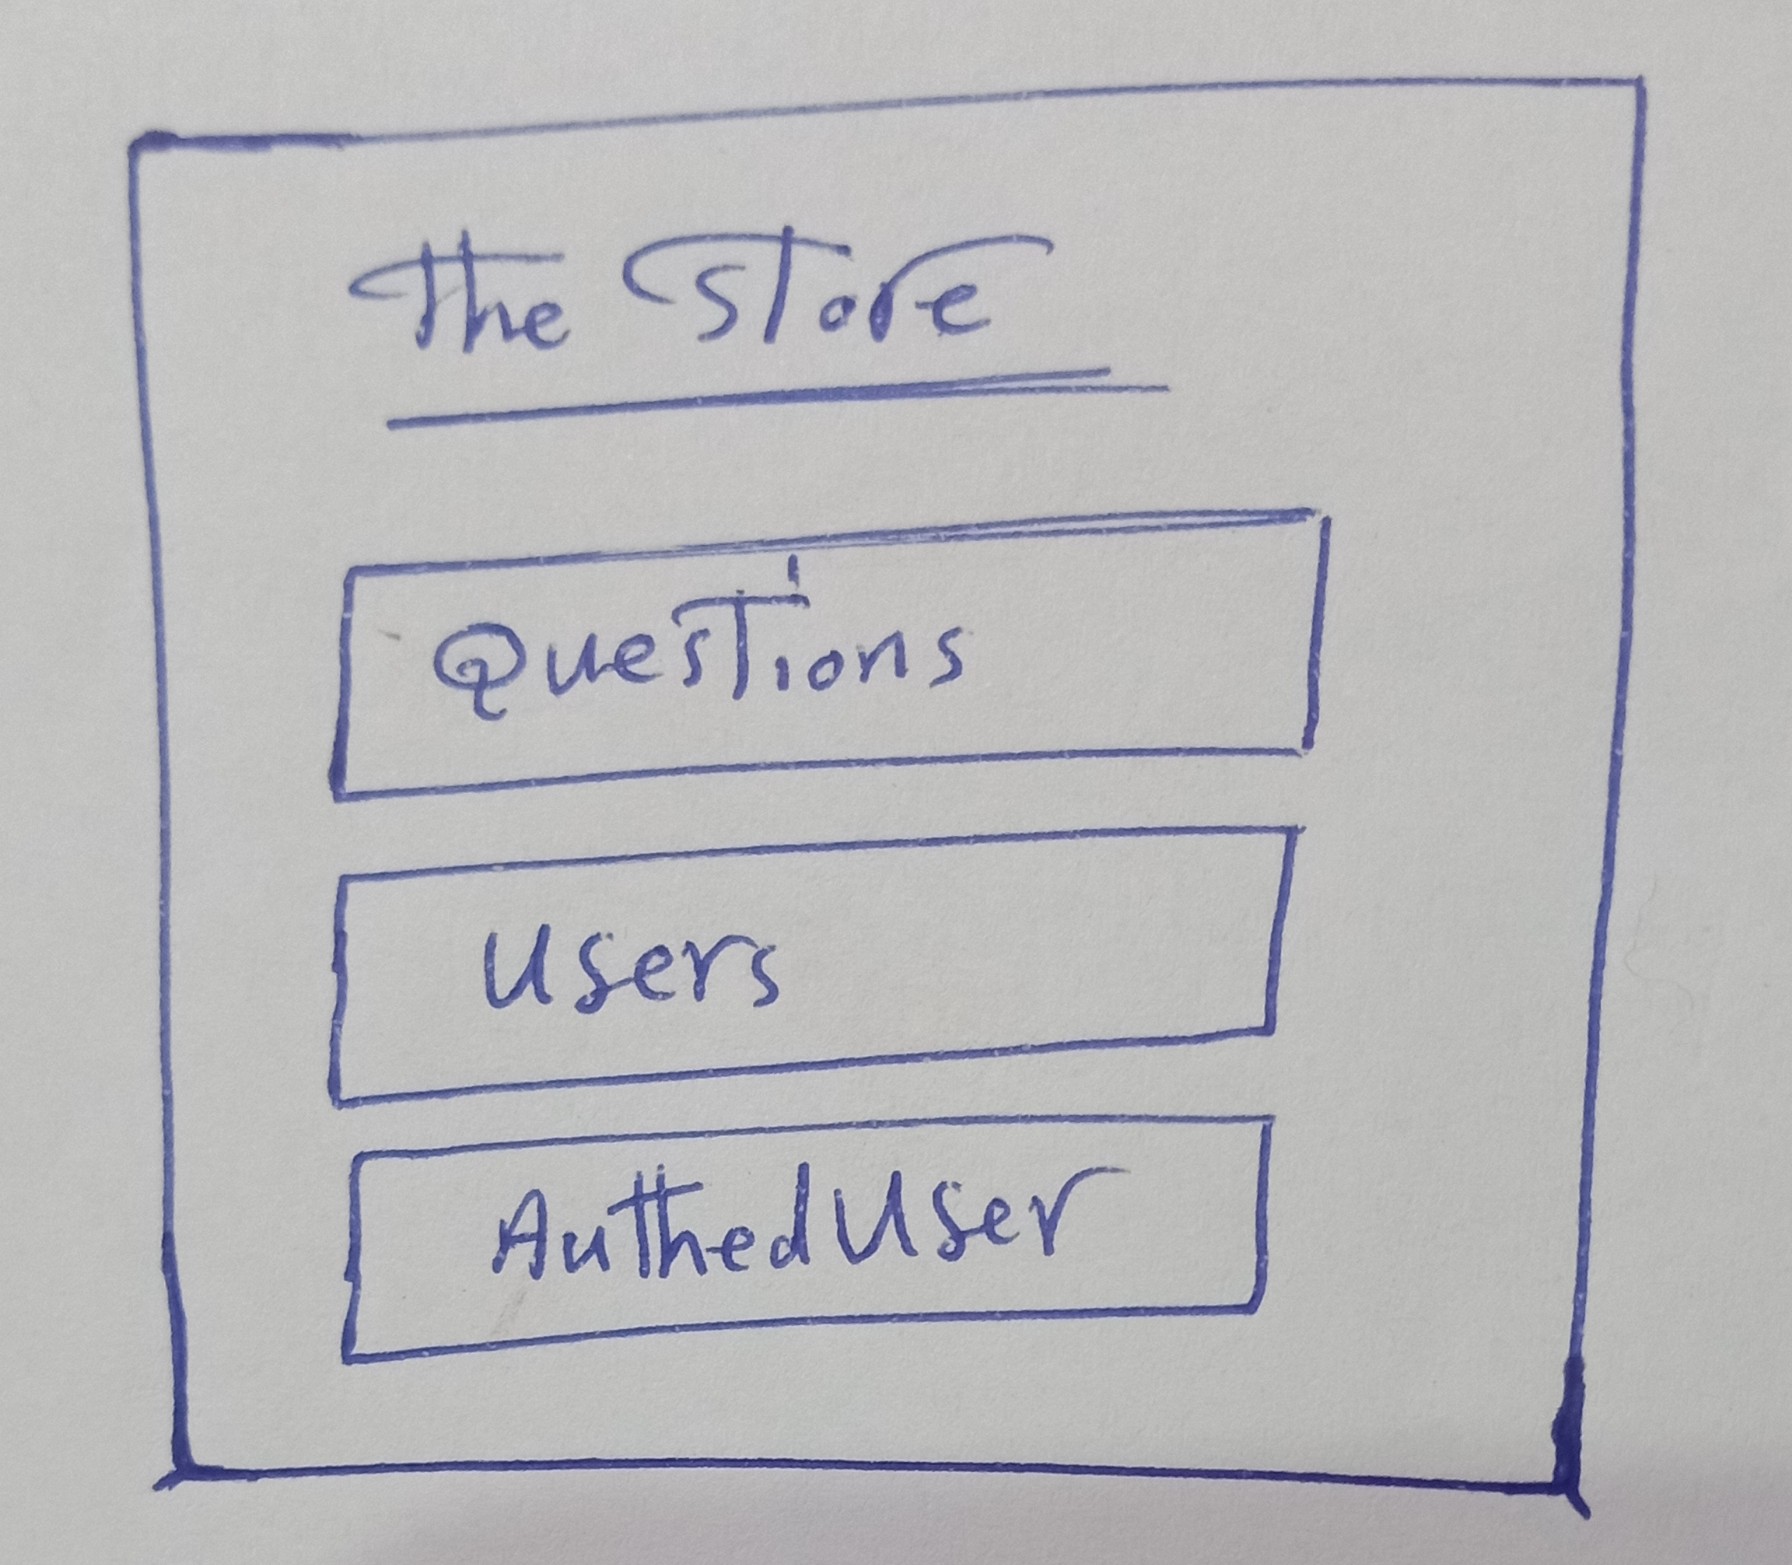 The Store
Questions
Users
AuthedUser